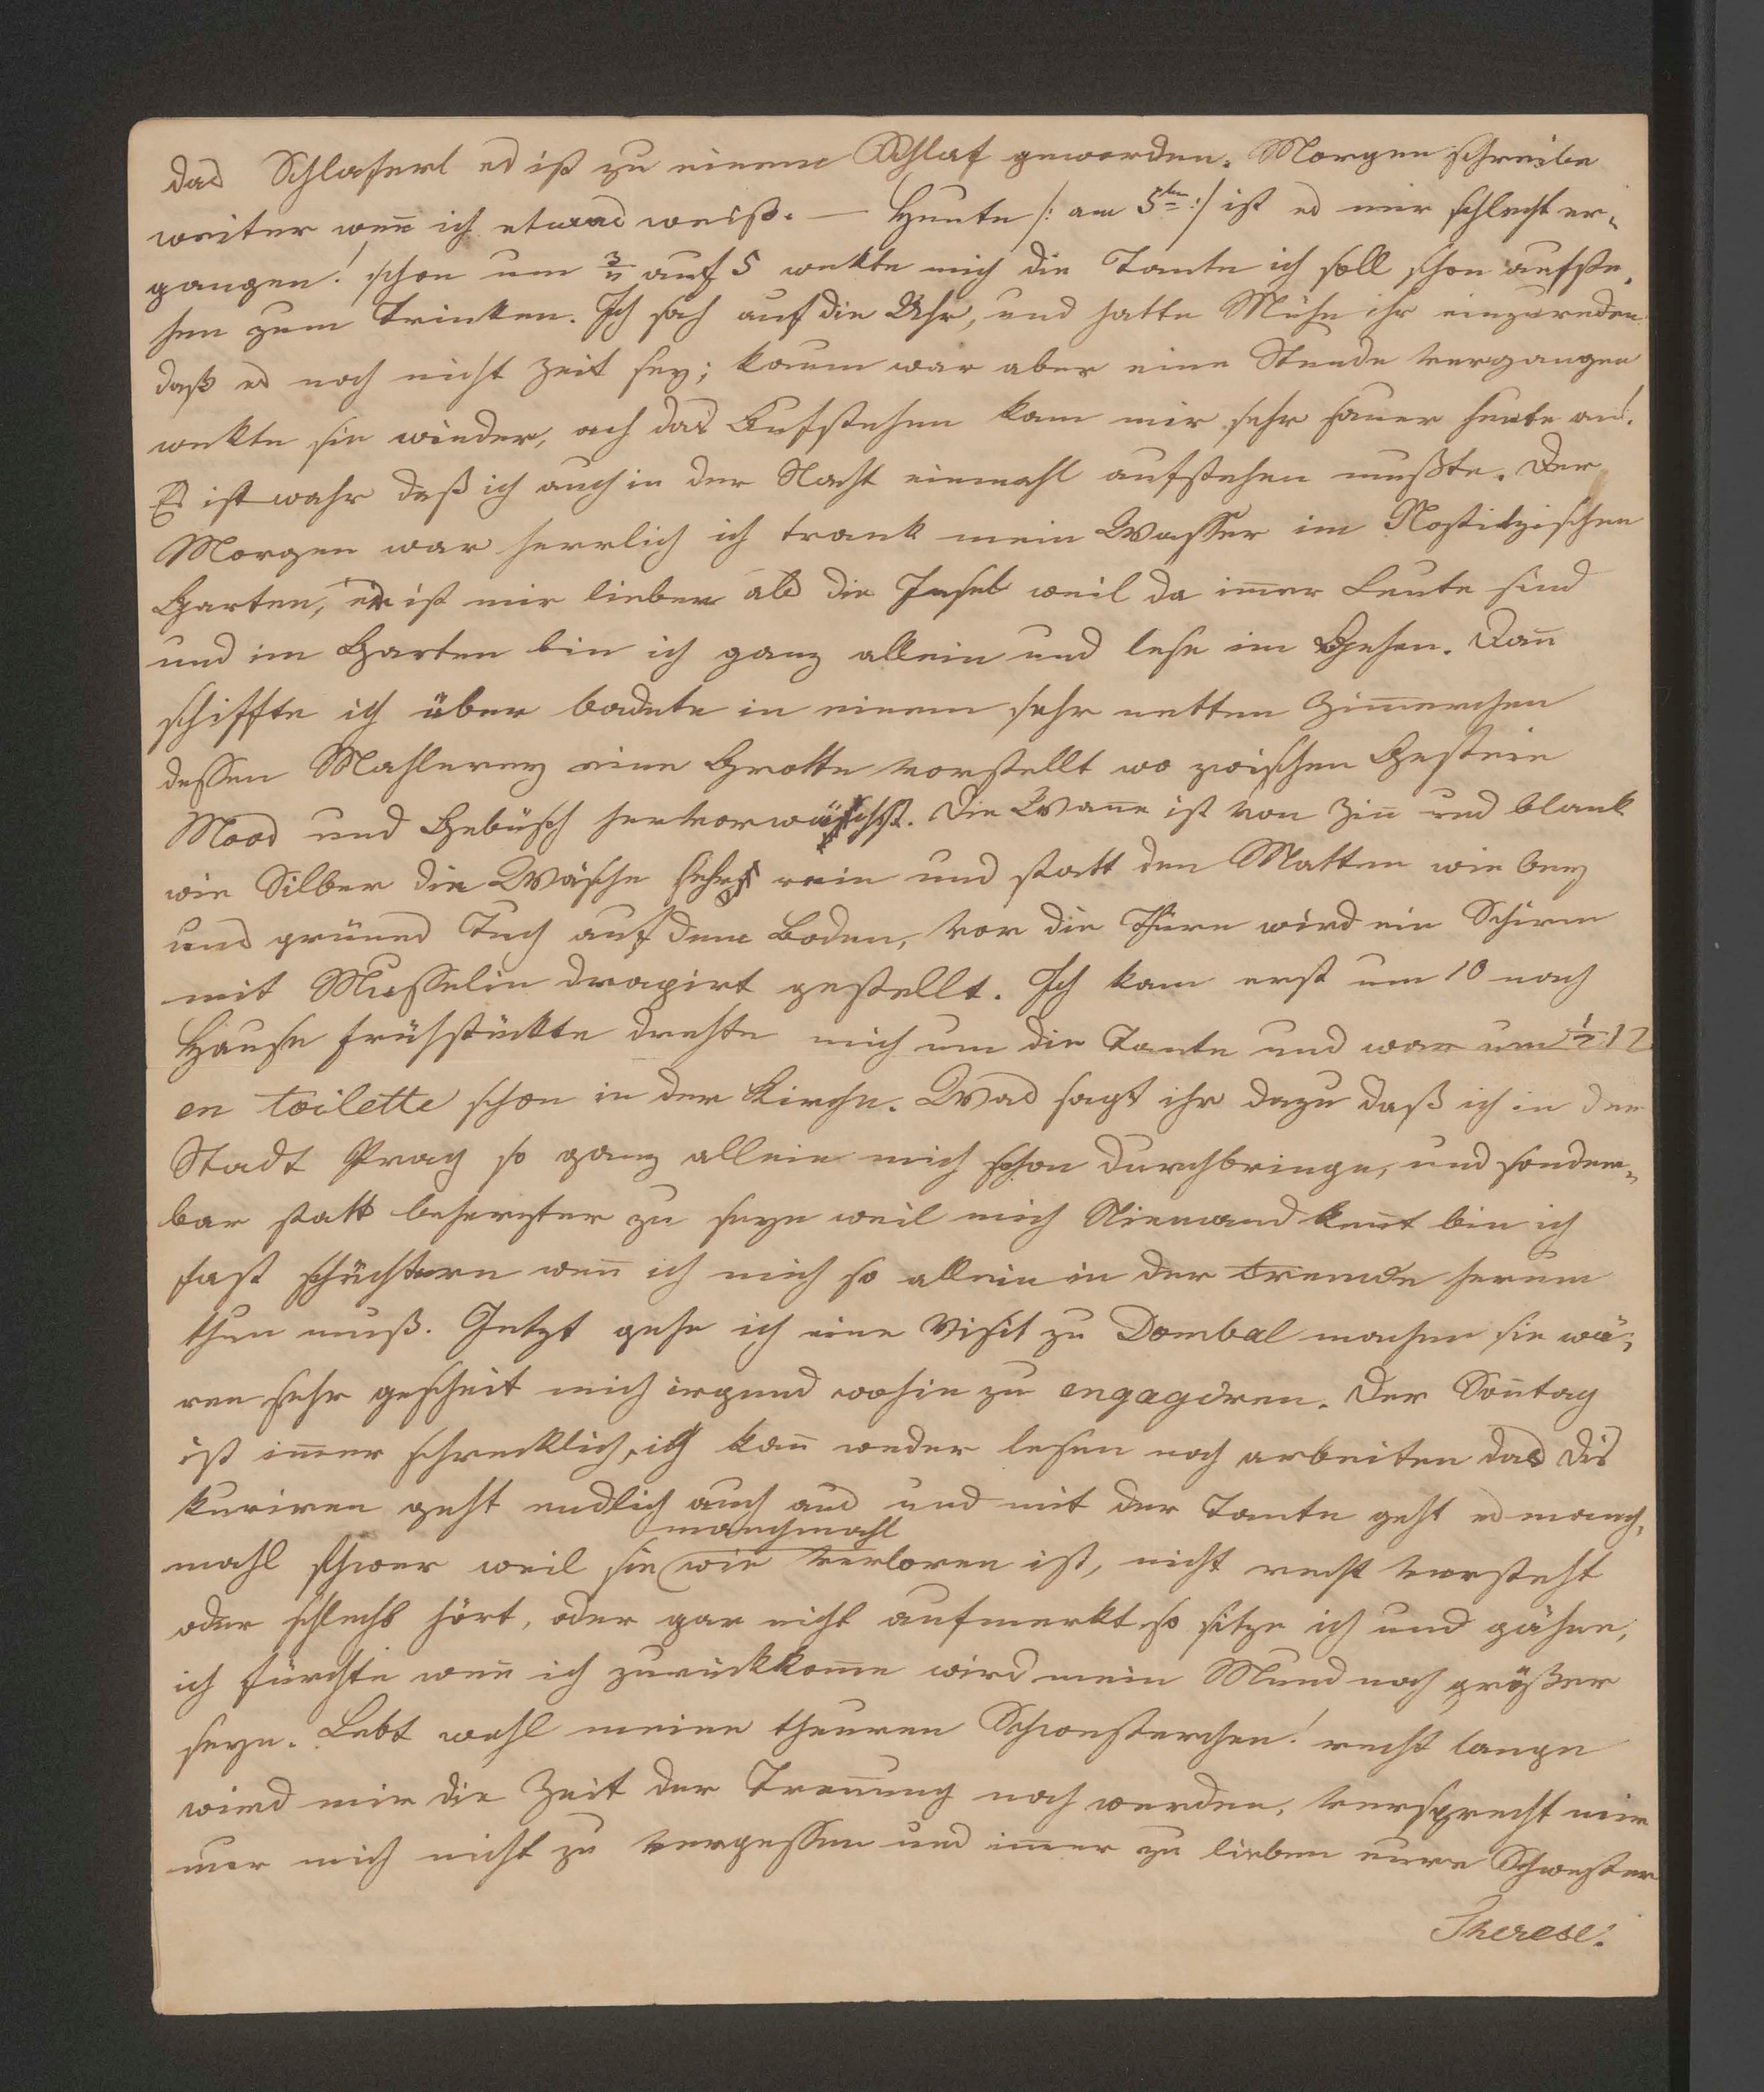 das Schlaferl es ist zu einem Schlaf geworden. Morgen schreibe
weiter wen̄ ich etwas weiß. — Heute /: am 5ten :/ ist es mir schlecht er-
gangen! schon um ¾ auf 5 wekte mich die Tante ich soll schon aufste-
hen zum Trinken. Ich sah auf die Uhr, und hatte Mühe ihr einzureden
daß es noch nicht Zeit sey; kaum war aber eine Stunde vergangen
wekte sie wieder, ach das Aufstehen kam mir sehr sauer heute an!
Es ist wahr daß ich auch in der Nacht einmahl aufstehen mußte. Der
Morgen war herrlich ich trank mein Wasser im Nostitzischen
Garten, er ist mir lieber als die Insel weil da im̄er Leute sind
und im Garten bin ich ganz allein und lese im Gehen. Dan̄
schiffte ich über badete in einem sehr netten Zim̄erchen
dessen Mahlerey eine Grotte vorstellt wo zwischen Gestein
Moos und Gebüsch hervorwächst. Die Wan̄e ist von Zin̄ und blank
wie Silber die Wäsche sehr rein und statt den Matten wie bey
uns grünes Tuch auf dem Boden, vor die Thüre wird ein Schirm
mit Musselin drapirt gestellt. Ich kam erst um 10 nach
Hause frühstükte drehte mich um die Tante und war um ½ 12
en toilette schon in der Kirche. Was sagt ihr dazu daß ich in der
Stadt Prag so ganz allein mich schon durchbringe, und sonder-
bar statt beherzter zu seyn weil mich Niemand ken̄t bin ich
fast schüchtern wen̄ ich mich so allein in der Fremde herum
thun muß. Jetzt gehe ich eine Visit zu Dombal machen sie wä-
ren sehr gescheit mich irgend wohin zu engagiren. Der Son̄tag
ist im̄er schrecklich, ich kan̄ weder lesen noch arbeiten das Dis
kuriren geht endlich auch aus und mit der Tante geht es manch-
manchmahl
mahl schwer weil sie wie verloren ist, nicht recht versteht
oder schlecht hört, oder gar nicht aufmerkt so sitze ich und gähne,
ich fürchte wen̄ ich zurückkom̄e wird mein Mund noch größer
seyn. Lebt wohl meine theuren Schwesterchen! recht lange
wird mir die Zeit der Tren̄ung noch werden, versprecht mir
nur mich nicht zu vergessen und im̄er zu lieben eure Schwester
Therese.